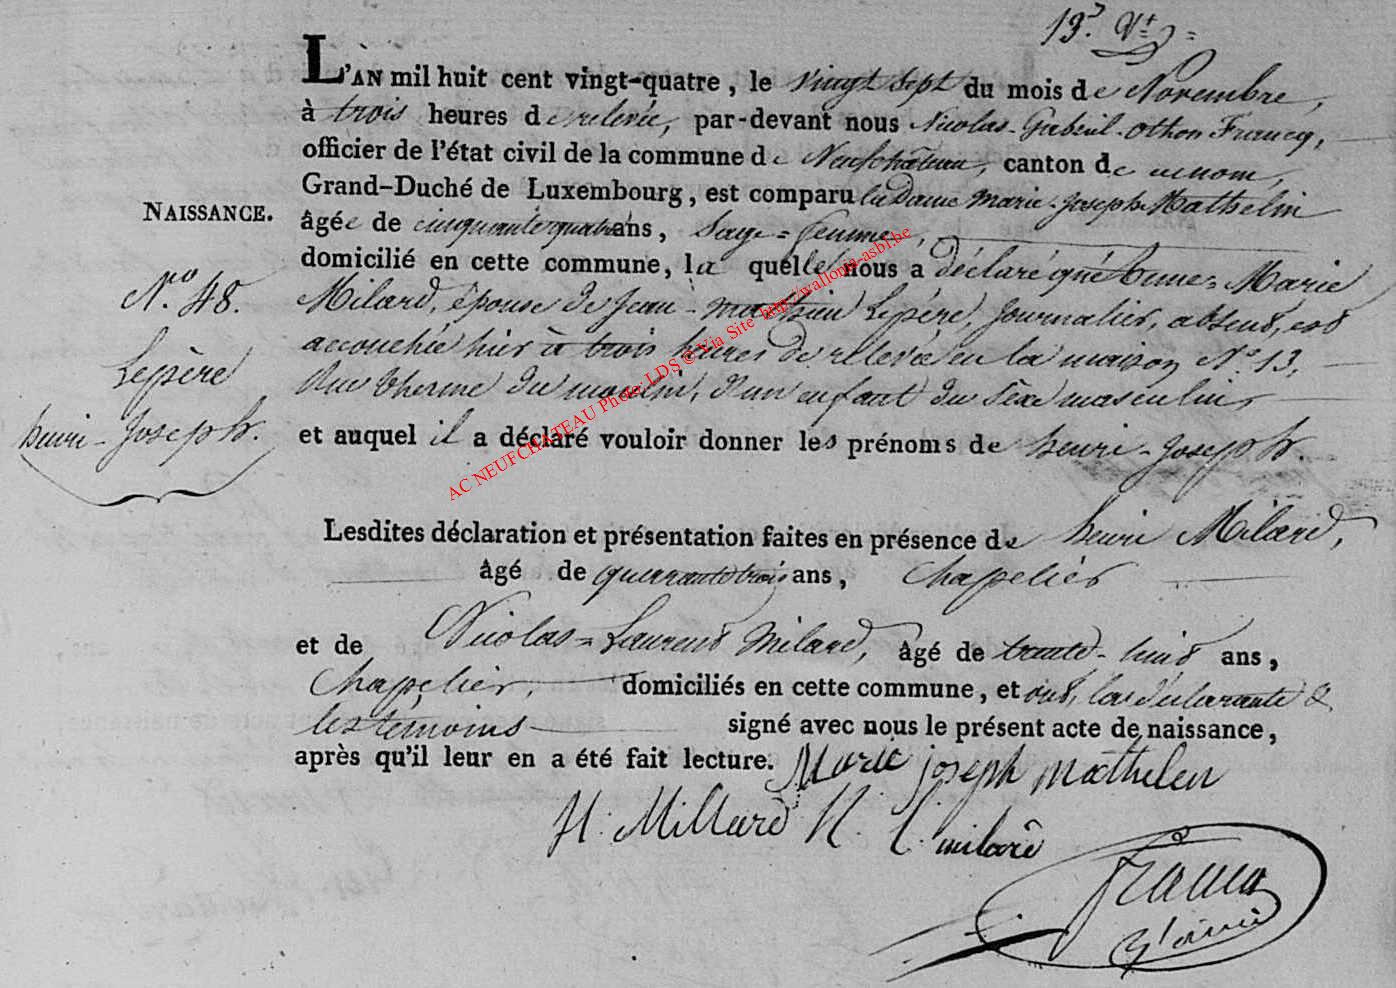 13.
L'AN mil huit cent vingt-quatre, le vingt sept du mois de Novembre,
à trois heures de relevée, par-devant nous Nicolas-Gabriel-othon Francq,
officier de l'état civil de la commune de Neufchâteau, canton de ce nom,
Grand-Duché de Luxembourg, est comparu la Dame Marie-Joseph Mathelin
NAISSANCE.
âgée de cinquante quatre ans, Sage-femme,
domicilié en cette commune, la quelle nous a déclaré que Anne-Marie
N.o 48.
Milard, épouse de Jean-mathieu Lepère, Journalier, absent, est
accouchée hier à trois heures de relevée en la maison No. 13,
Lepère
Rue du moulin, d'un enfant du sèxe masculin,
henri-Joseph.
et auquel il a déclaré vouloir donner les prénoms de henri-Joseph.
AC NEUFCHATEAU Photo: LDS © Via Site http://wallonia-asbl.be
Lesdites déclaration et présentation faites en présence de henri Milard,
âgé de quarante trois ans, Chapelier
et de Nicolas-Laurent Milard, âgé de trente-huit ans,
Chapelier, domiciliés en cette commune, et ont, la déclarante &
les témoins signé avec nous le présent acte de naissance,
après qu'il leur en a été fait lecture.
Marie joseph mathelin
H. Millard N. L. milard
Francq